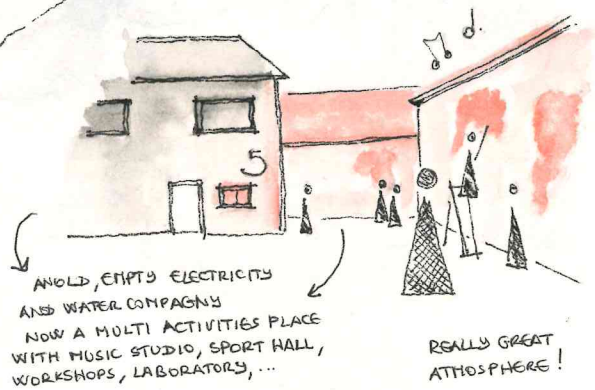 5
ANOLD, EMPTY ELECTRICITY
AND WATER COMPAGNY
NOW A MULTI ACTIVITIES PLACE
WITH MUSIC STUDIO, SPORT HALL,
WORKSHOPS, LABORATORY, ...
REALLY GREAT
ATMOSPHERE !